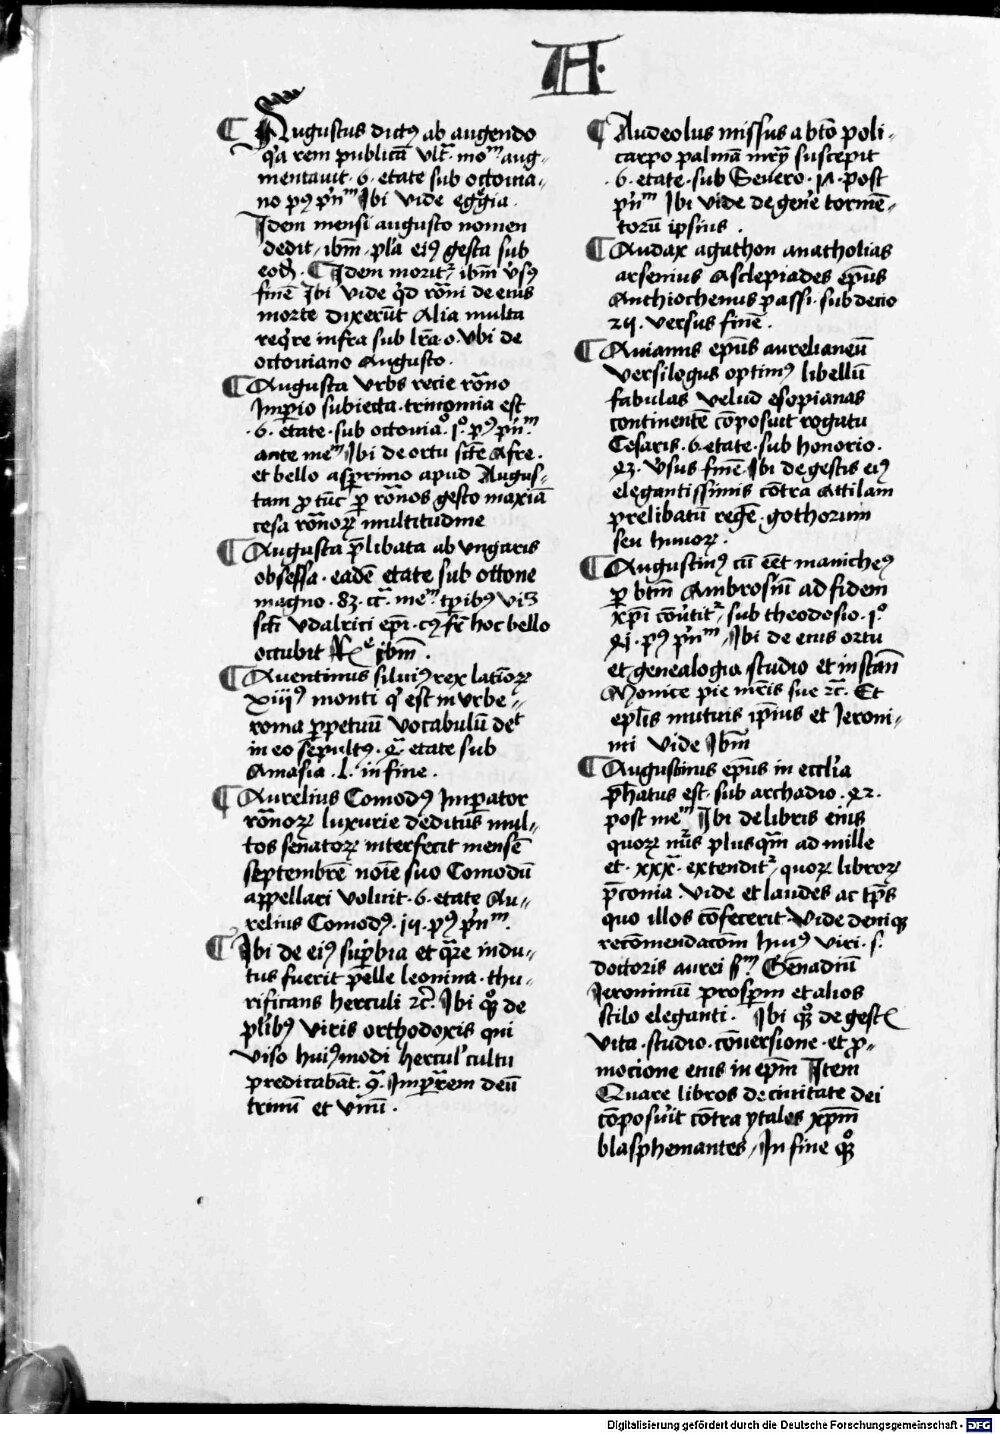 A.
¶ Augustus dictꝰ ab augendo
qꝛa rem publicā vltͣ moᵐ aug-
mentauit · 6 · etate sub octouia-
no pꝰ pͥnᵐ Ibi vide egͣgia ·
Idem mensi augusto nomen
dedit, ibm̄ · plꝛa eiꝰ gesta sub
eod̄ · ¶ Idem moritͬ ibm̄ v̓sꝰ
finē Ibi vide qͥd rōni de eius
morte dixerūt Alia multa
reqͥre infra sub lr̄a · o · vbi de
octouiano Augusto ·
¶ Augusta vrbs recie rōno
Imꝑio subiecta · trinomia est
· 6 · etate · sub octouiaͦ · Iͦ · pꝰ pͥnᵐ
ante meᵐ Ibi de ortu scē Afre ·
et bello asꝑrimo apud Augus-
tam ꝓ tūc ꝑ rōnos gesto maxiā
cesa rōnoꝝ multitudine
¶ Augusta p̄libata ab vngaris
obsessa · eadē etate sub ottone
magno · 83 · ccͣ · meᵐ tp̄ibꝰ vis
scti vdalrici ep̄i · cꝰ fr̄ hoc bello
occubit Rͤ ibm̄ ·
¶ Auentinus siluiꝰ rex latīoꝝ
xiiijꝰ monti qͥ est in vrbe -
roma ꝑpetuū vocabulū deᵗ
in eo sepultꝰ · 4ͣ · etate sub
Amasia · l · in fine ·
¶ Aurelius Comodꝰ Imꝑator
rōnoꝝ luxurie deditus mul-
tos senatoꝝ interfecit mensē
septembrē noīe suo Comodū
appellari voluit · 6 · etate Au-
relius Comodꝰ · iii · pꝰ pͥnᵐ ·
¶ Ibi de eiꝰ suꝑbia et qͣre indu-
tus fuerit pelle leonina · thu-
rificans herculi ⁊c̄ · Ibi qꝫͦ de
plͥibꝰ viris orthodoxis qui
viso huiꝰmodi hercul cultu
predicabāt · qͣ · Imꝑrem deū
trinū et vnū ·
¶ Audeolus missus a bto poli-
carpo palmā mr̄ij suscepit
· 6 · etate · sub Seuero · post
pͥnᵐ Ibi vide de gen̓e tormē-
torū ipsius ·
¶ Audax agathon anatholias
arsenius Asclepiades ep̄us
Anthiochenus passi · sub decio
· versus finē ·
¶ Auianus ep̄us aurelianeū
versilogus optimꝰ libellū
fabulas velud esopianas
continentē cōposuit rogatu
Cesaris · 6 · etate · sub honorio ·
43 · v̓sus finē · Ibi de gestis eiꝰ
elegantissimis cōtra Attilam
prelibatū regē · gothorum
seu hunoꝝ ·
¶ Augustinꝰ cū eēt manicheꝰ
ꝑ btm̄ Ambrosiū ad fidem
xp̄i cōu̓titͬ · sub theodosio · Iͦ
· pꝰ pͥnᵐ, Ibi de eius ortu
et genealogia studio et instan̄
Monice pie mr̄is sue ⁊c̄ · Et
eplīs mutuis ip̄ius et Ieroni-
mi vide Ibm̄
¶ Augustinus ep̄us in ecclīa
p̄hatus est · sub archadio · 42 ·
post meᵐ Ibi de libris eius
quoꝝ nūs plusqͣm̄ ad mille
et · xxxͣ · extenditͬ, quoꝝ libroꝝ
p̄conia · vide et laudes ac tp̄s
quo illos cōfecerit · vide deniqꝫ
recōmendacōm huiꝰ viri · s ·
doctoris aurei sᵐ Genadiū
Ieronimū prosꝑm et alios
stilo eleganti · Ibi qꝫͦ de gestꝭ
vita · studio · cōuersione · et ꝓ-
mocione eius in ep̄m Item
Quare libros de ciuitate dei
cōposuit cōtra ytales xp̄m
blasphemantes, In fine qꝫͦ
Digitalisierung gefördert durch die Deutsche Forschungsgemeinschaft - DFG